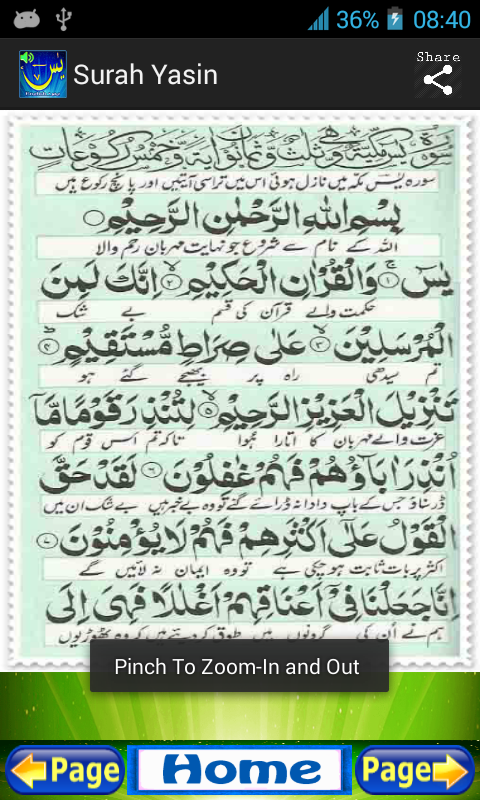 36% 08:40
Surah Yasin
Share
سورۃ یٰسٓ مکیۃ وھی ثلث و ثمانون اٰیۃ و خمس رکوعات
سورہ یٰسٓ مکہ میں نازل ہوئی اس میں تراسی آیتیں اور پانچ رکوع ہیں
بِسْمِ اللّٰهِ الرَّحْمٰنِ الرَّحِیْمِ
اللہ کے نام سے شروع جو نہایت مہربان رحم والا
یٰسٓ ۚ﴿۱﴾ وَالْقُرْاٰنِ الْحَكِیْمِ ۙ﴿۲﴾ اِنَّكَ لَمِنَ
حکمت والے قرآن کی قسم بے شک
الْمُرْسَلِیْنَ ۙ﴿۳﴾ عَلٰی صِرَاطٍ مُّسْتَقِیْمٍ ؕ﴿۴﴾
تم سیدھی راہ پر بھیجے گئے ہو
تَنْزِیْلَ الْعَزِیْزِ الرَّحِیْمِ ۙ﴿۵﴾ لِتُنْذِرَ قَوْمًا مَّاۤ
عزت والے مہربان کا اتارا ہوا تاکہ تم اس قوم کو
اُنْذِرَ اٰبَآؤُهُمْ فَهُمْ غٰفِلُوْنَ ﴿۶﴾ لَقَدْ حَقَّ
ڈر سناؤ جس کے باپ دادا نہ ڈرائے گئے تو وہ بے خبر ہیں بے شک ان میں
الْقَوْلُ عَلٰۤی اَكْثَرِهِمْ فَهُمْ لَا یُؤْمِنُوْنَ ﴿۷﴾
اکثر پر بات ثابت ہو چکی ہے تو وہ ایمان نہ لائیں گے
اِنَّا جَعَلْنَا فِیْۤ اَعْنَاقِهِمْ اَغْلٰلًا فَهِیَ اِلَی
ہم نے ان کی گردنوں میں طوق کر دیئے ہیں کہ وہ ٹھوڑیوں
Pinch To Zoom-In and Out
Page Home Page